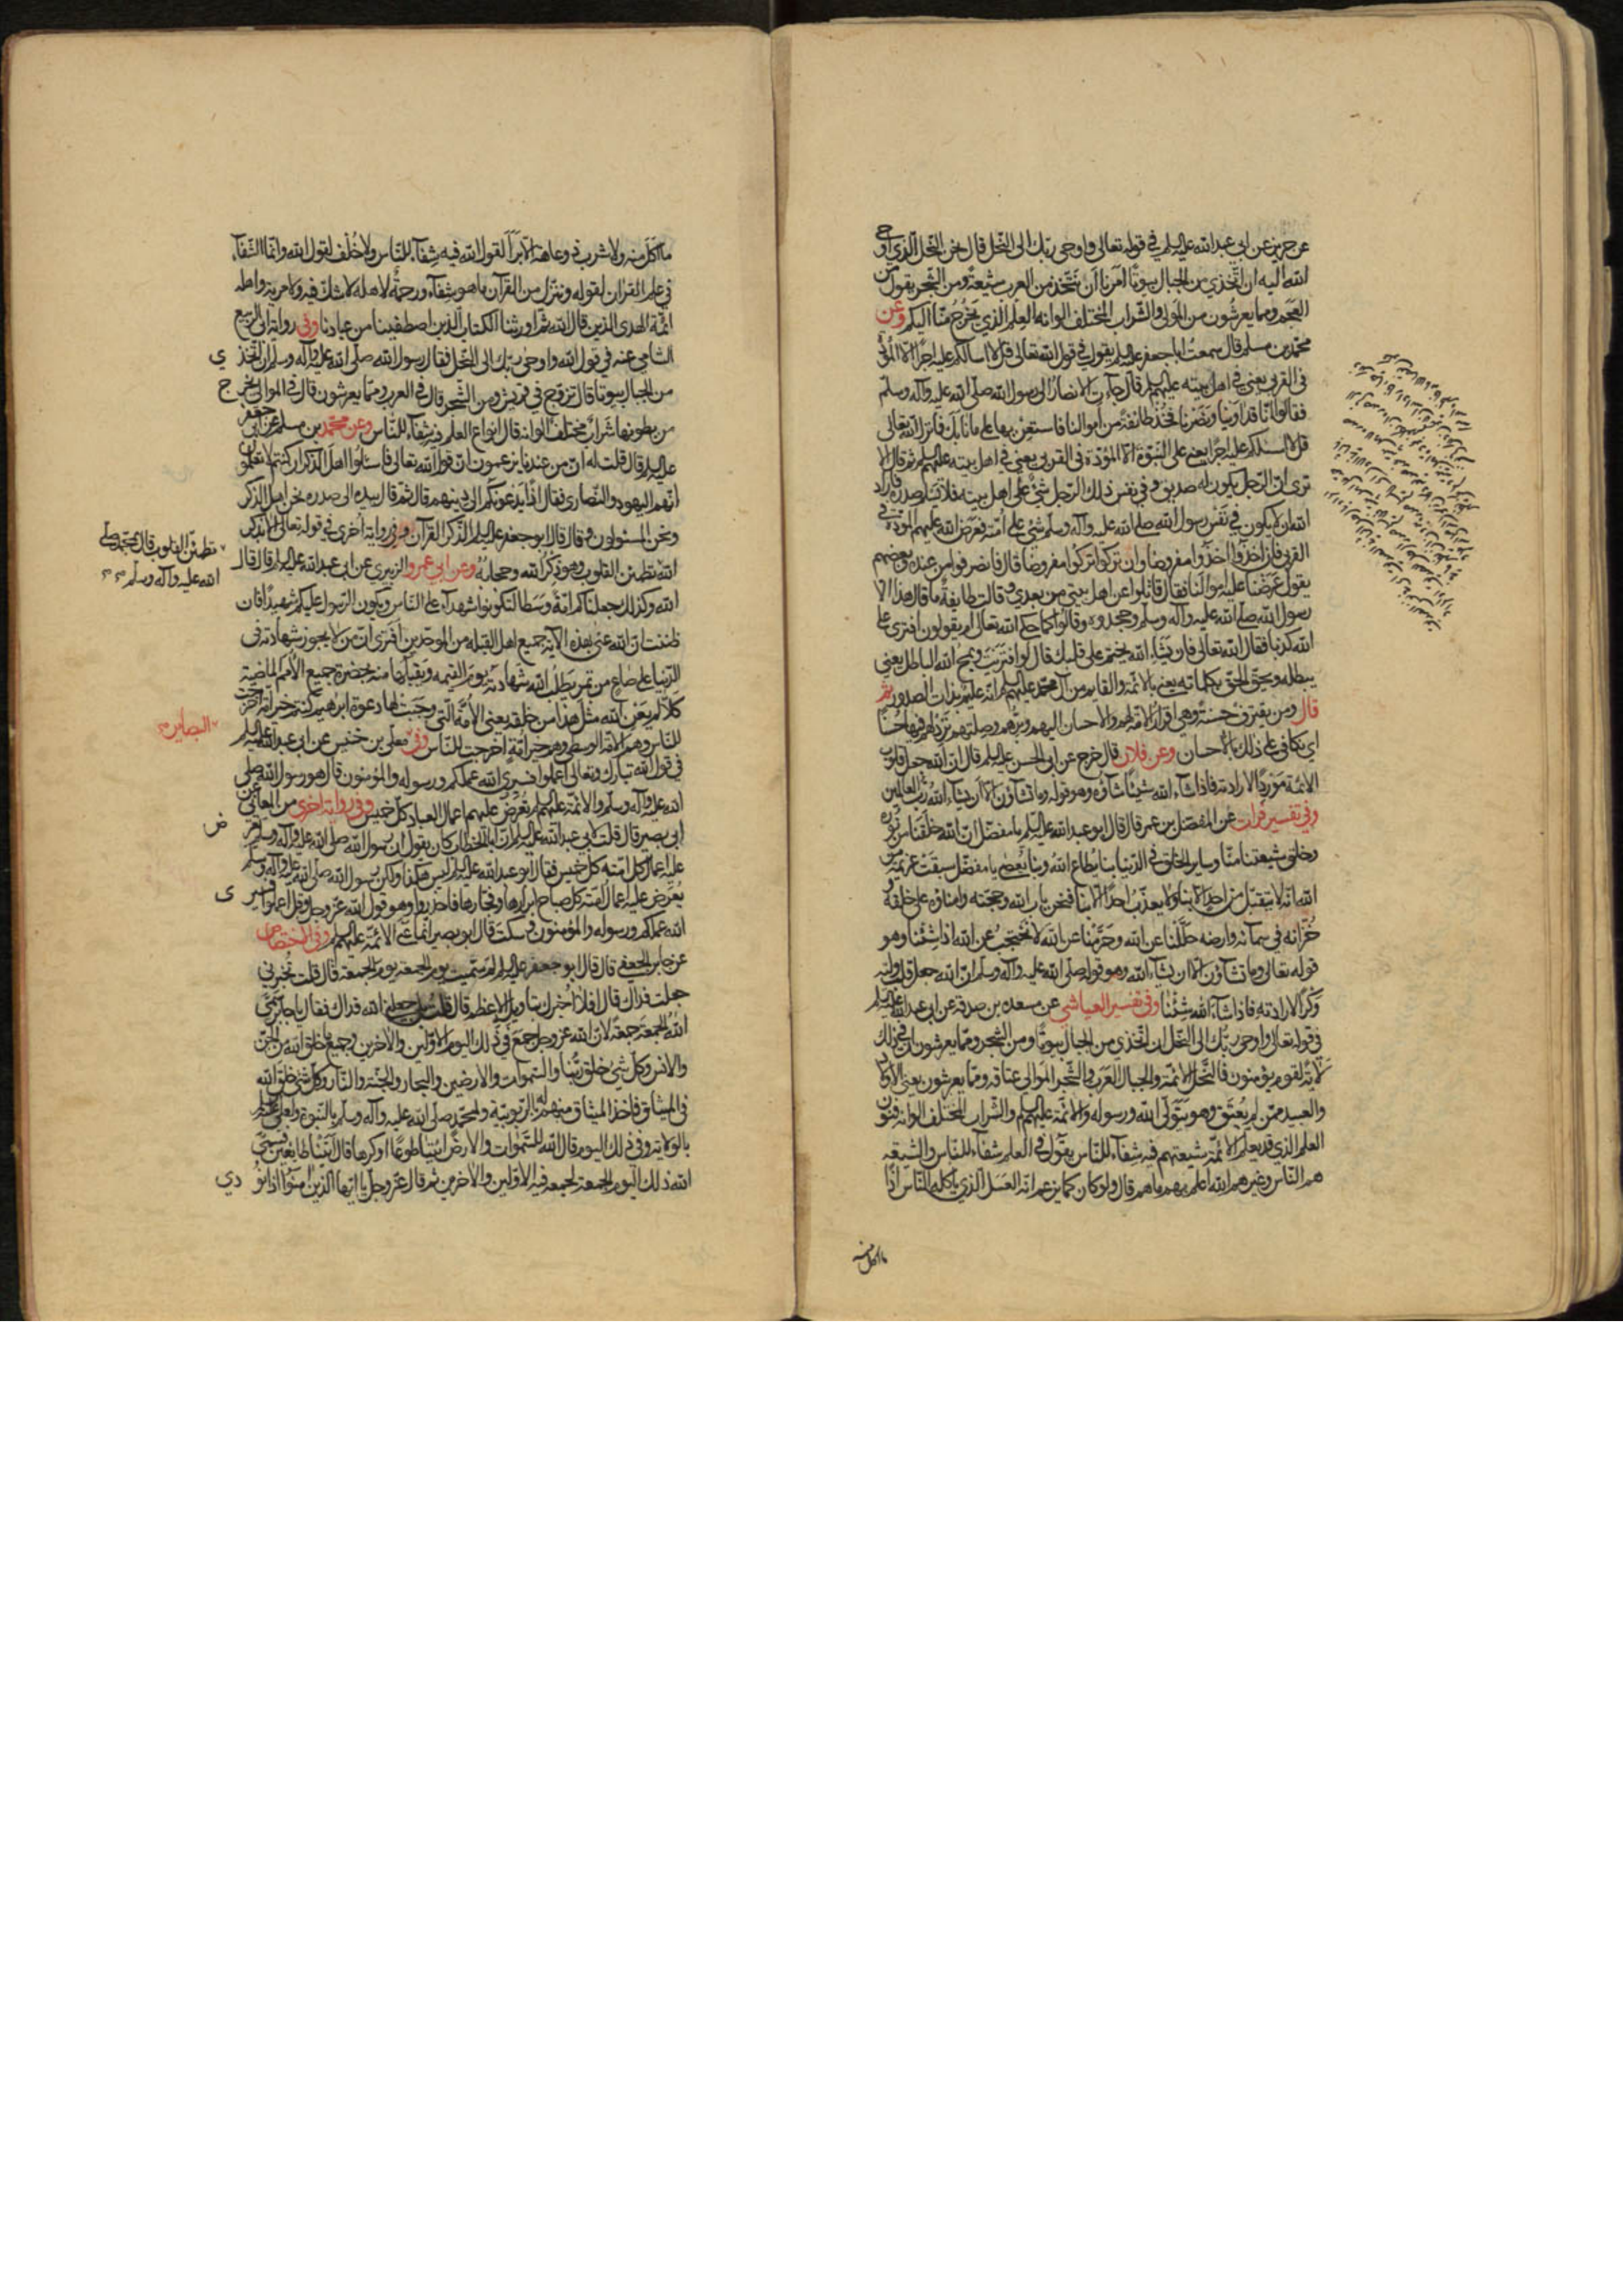 عن حريز عن ابي عبدالله عليه السلم في قوله تعالى واوحى ربك الى النحل قال نحن النحل الذي اوحى
الله اليه ان اتخذي من الجبال بيوتا امرنا ان نتخذ من العرب شيعة ومن الشجر يقول من
العجم ومما يعرشون من الموالي والشراب المختلف الوانه العلم الذي يخرج منا اليكم وعن
محمد بن مسلم قال سمعت ابا جعفر عليه السلم يقول في قول الله تعالى قل لا اسالكم عليه اجرا الا المودة
في القربى يعني في اهل بيته عليهم السلم قال جاءت الانصار الى رسول الله صلى الله عليه وآله وسلم
فقالوا انا قد اوينا ونصرنا فخذ طائفة من اموالنا فاستعن بها على ما نابك فانزل الله تعالى
قل لا اسئلكم عليه اجرا يعني على النبوة الا المودة في القربى يعني في اهل بيته عليهم السلم ثم قال الا
ترى ان الرجل يكون له صديق وفي نفس ذلك الرجل شيء على اهل بيته فلا يسلم صدره فاراد
الله ان لا يكون في نفس رسول الله صلى الله عليه وآله وسلم شيء على امته ففرض الله عليهم المودة في
القربى فان اخذوا اخذوا مفروضا وان تركوا تركوا مفروضا قال فانصرفوا من عنده وبعضهم
يقول عرضنا عليه اموالنا فقال قاتلوا عن اهل بيتي من بعدي وقالت طايفة ما قال هذا الا
رسول الله صلى الله عليه وآله وسلم وجحدوه وقالوا كما حكى الله تعالى ام يقولون افترى على
الله كذبا فقال الله تعالى فان يشاء الله يختم على قلبك قال لو افتريت ويمح الله الباطل يعني
يبطله ويحق الحق بكلماته يعني بالائمة والقايم من آل محمد عليهم السلم انه عليم بذات الصدور ثم
قال ومن يقترف حسنة وهي اقرار الامة لهم والاحسان اليهم وبرهم وصلتهم نزد له فيها حسنا
اي نكافي على ذلك بالاحسان وعن فلان قال خرج عن ابي الحسن عليه السلم قال ان الله جعل قلوب
الائمة موردا لارادته فاذا شاء الله شيئا شاؤه وهو قوله وما تشاؤن الا ان يشاء الله رب العالمين
وفي تفسير فرات عن المفضل بن عمر قال قال ابو عبدالله عليه السلم يا مفضل ان الله خلقنا من نوره
وخلق شيعتنا منا وساير الخلق في الدنيا بنا يطاع الله وبنا يعصى يا مفضل سبقت عزيمة من
الله انه لا يتقبل من احد الا بنا ولا يعذب احدا الا بنا فنحن باب الله وحجته وامناؤه على خلقه و
خزانه في سمائه وارضه حللنا عن الله وحرمنا عن الله لا نحتجب عن الله اذا شئنا وهو
قوله تعالى وما تشاؤن الا ان يشاء الله وهو قوله صلى الله عليه وآله وسلم ان الله جعل قلب وليه
وكرا لارادته فاذا شاء الله شئنا وفي تفسير العياشي عن مسعدة بن صدقة عن ابي عبدالله عليه السلم
في قوله تعالى واوحى ربك الى النحل ان اتخذي من الجبال بيوتا ومن الشجر ومما يعرشون ان في ذلك
لاية لقوم يؤمنون فالنحل الائمة والجبال العرب والشجر الموالي عتاقه ومما يعرشون يعني الاولاد
والعبيد ممن لم يعتق وهو يتولى الله ورسوله والائمة عليهم السلم والشراب المختلف الوانه فنون
العلم الذي قد يعلم الائمة شيعتهم فيه شفاء للناس يقول في العلم شفاء للناس والشيعة
هم الناس وغيرهم الله اعلم بهم ما هم قال ولو كان كما يزعم انه العسل الذي ياكله الناس اذا
ما اكل منه
ما اكل منه ولا شرب ذو عاهة الا برأ لقول الله فيه شفاء للناس ولا خلف لقول الله وانما الشفاء
في علم القران لقوله وننزل من القرآن ما هو شفاء ورحمة لاهله لا شك فيه ولا مرية واهله
ائمة الهدى الذين قال الله ثم اورثنا الكتاب الذين اصطفينا من عبادنا وفي رواية ابي الربيع
الشامي عنه في قول الله واوحى ربك الى النحل فقال رسول الله صلى الله عليه وآله وسلم ان اتخذي
من الجبال بيوتا قال تزوج في قريش ومن الشجر قال في العرب ومما يعرشون قال في الموالي يخرج
من بطونها شراب مختلف الوانه قال انواع العلم فيه شفاء للناس وعن محمد بن مسلم عن ابي جعفر
عليه السلم قال قلت له ان من عندنا يزعمون ان قول الله تعالى فاسئلوا اهل الذكر ان كنتم لا تعلمون
انهم اليهود والنصارى فقال اذا يدعونكم الى دينهم قال ثم قال بيده الى صدره نحن اهل الذكر
ونحن المسئولون وقال قال ابو جعفر عليه السلم الذكر القرآن وفي رواية اخرى في قوله تعالى الا بذكر
الله تطمئن القلوب وهو ذكر الله وحجابه وعن ابي عمرو الزبيري عن ابي عبدالله عليه السلم قال قال
تطمئن القلوب قال بمحمد صلى
الله عليه وآله وسلم
الله وكذلك جعلناكم امة وسطا لتكونوا شهداء على الناس ويكون الرسول عليكم شهيدا فان
ظننت ان الله عنى بهذه الآية جميع اهل القبلة من الموحدين افترى ان من لا يجوز شهادته في
الدنيا على صاع من تمر يطلب الله شهادته يوم القيمة ويقبلها منه بحضرة جميع الامم الماضية
كلا لم يعن الله مثل هذا من خلقه يعني الامة التي وجبت لها دعوة ابرهيم كنتم خير امة اخرجت
للناس وهم الامة الوسطى وهم خير امة اخرجت للناس وفي معلى بن خنيس عن ابي عبدالله عليه السلم
البصاير
في قول الله تبارك وتعالى اعملوا فسيرى الله عملكم ورسوله والمؤمنون قال هو رسول الله صلى
الله عليه وآله وسلم والائمة عليهم السلم يعرض عليهم اعمال العباد كل خميس وفي رواية اخرى من المعاني عن
ابي بصير قال قلت لابي عبدالله عليه السلم ان ابا الخطاب كان يقول ان رسول الله صلى الله عليه وآله وسلم تعرض
عليه اعمال امته كل خميس فقال ابو عبدالله عليه السلم ليس هكذا ولكن رسول الله صلى الله عليه وآله وسلم
يعرض عليه اعمال امته كل صباح ابرارها وفجارها فاحذروا وهو قول الله عز وجل وقل اعملوا فسيرى
الله عملكم ورسوله والمؤمنون وسكت قال ابو بصير انما عنى الائمة عليهم السلم وفي الاختصاص
عن جابر الجعفي قال قال ابو جعفر عليه السلم لم سميت يوم الجمعة يوم الجمعة قال قلت تخبرني
جعلت فداك قال افلا اخبرك بتاويله الاعظم قال قلت بلى جعلني الله فداك فقال يا جابر سمى
الله الجمعة جمعة لان الله عز وجل جمع في ذلك اليوم الاولين والآخرين وجميع ما خلق الله من الجن
والانس وكل شئ خلق ربنا والسموات والارضين والبحار والجنة والنار وكل شئ خلق الله
في الميثاق فاخذ الميثاق منهم له بالربوبية ولمحمد صلى الله عليه وآله وسلم بالنبوة ولعلي عليه السلم
بالولاية وفي ذلك اليوم قال الله للسموات والارض ائتيا طوعا او كرها قالتا اتينا طائعين فسمى
الله ذلك اليوم الجمعة لجمعه فيه الاولين والآخرين ثم قال عز وجل يا ايها الذين آمنوا اذا نودي